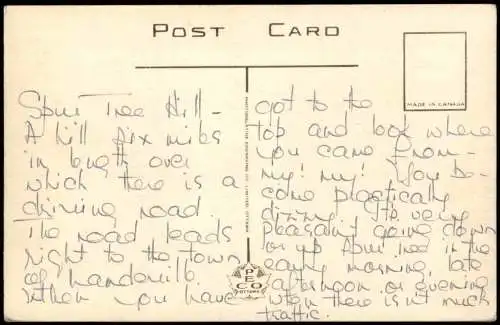 POST CARD
MADE IN CANADA
Spur Tree Hill -
A hill six miles
in length over
which there is a
driving road.
The road leads
right to the town
of Mandeville
when you have
got to the
top and look where
you came from -
my! my! You be-
come plastically
dizzy. It's very
pleasant going down
or up Spur Tree in the
early morning, late
afternoon, or evening
when there isn't much
traffic.
PHOTOGELATINE ENGRAVING CO. LIMITED, OTTAWA
PECO
OTTAWA